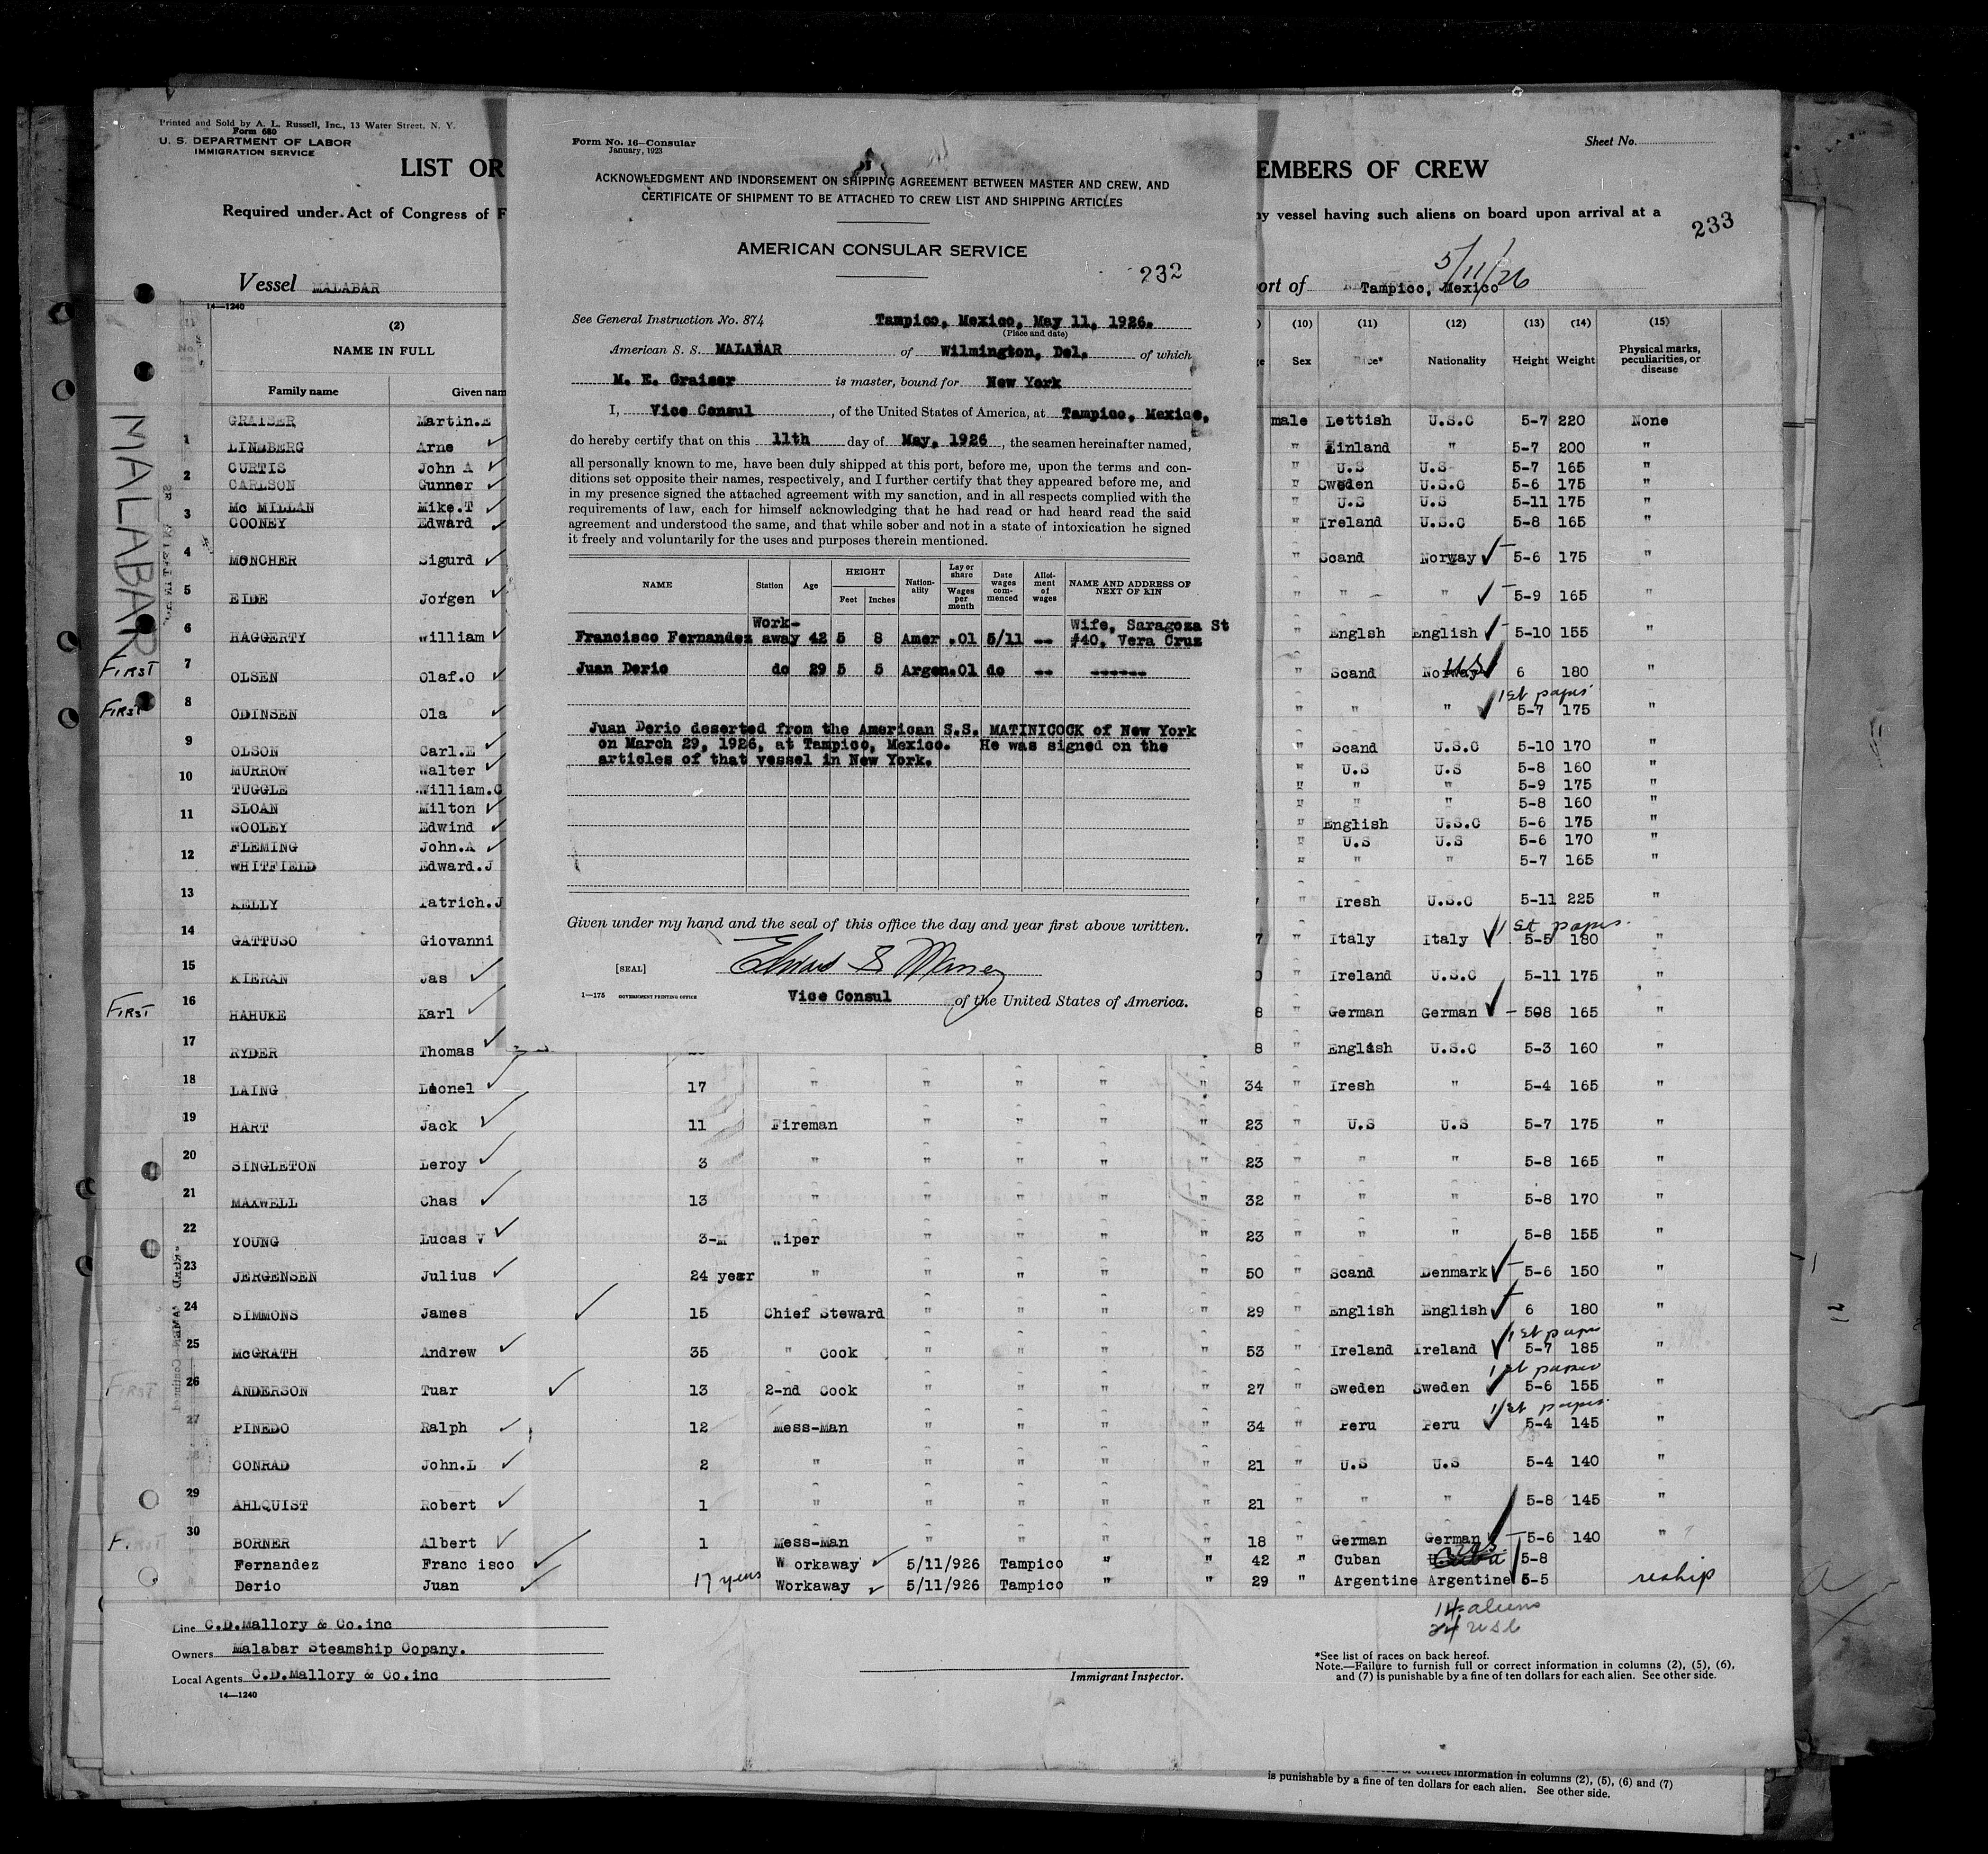 Printed and Sold by A. L. Russell, Inc., 13 Water Street, N. Y.
Form 680
U. S. DEPARTMENT OF LABOR
IMMIGRATION SERVICE
LIST OR
Required under Act of Congress of F
Vessel MALABAR
14—1240
(2)
NAME IN FULL
Family name Given nam
MALABAR
GRAISER Martin.E
1 LINDBERG Arne
CURTIS John A
2 CARLSON Gunner
Mc MILLAN Mike.T
3 COONEY Edward
4 MONCHER Sigurd
5 EIDE Jorgen
6 HAGGERTY William
FIRST 7 OLSEN Olaf.O
FIRST 8 ODINSEN Ola
9 OLSON Carl.E
MURROW Walter
10 TUGGLE William.C
SLOAN Milton
11 WOOLEY Edwind
FLEMING John.A
12 WHITFIELD Edward.J
13 KELLY Patrich.J
14 GATTUSO Giovanni
15 KIERAN Jas
FIRST 16 HAHUKE Karl
17 RYDER Thomas
Form No. 16—Consular
January, 1923
ACKNOWLEDGMENT AND INDORSEMENT ON SHIPPING AGREEMENT BETWEEN MASTER AND CREW, AND
CERTIFICATE OF SHIPMENT TO BE ATTACHED TO CREW LIST AND SHIPPING ARTICLES
AMERICAN CONSULAR SERVICE
232
See General Instruction No. 874 Tampico, Mexico, May 11, 1926.
(Place and date)
American S. S. MALABAR of Wilmington, Del. of which
M. E. Graiser is master, bound for New York
I, Vice Consul, of the United States of America, at Tampico, Mexico,
do hereby certify that on this 11th day of May, 1926, the seamen hereinafter named,
all personally known to me, have been duly shipped at this port, before me, upon the terms and con-
ditions set opposite their names, respectively, and I further certify that they appeared before me, and
in my presence signed the attached agreement with my sanction, and in all respects complied with the
requirements of law, each for himself acknowledging that he had read or had heard read the said
agreement and understood the same, and that while sober and not in a state of intoxication he signed
it freely and voluntarily for the uses and purposes therein mentioned.
NAME Station Age HEIGHT Feet Inches Nation-ality Lay or share Wages per month Date wages com-menced Allot-ment of wages NAME AND ADDRESS OF NEXT OF KIN
Work- Wife, Saragoza St
Francisco Fernandez away 42 5 8 Amer .01 5/11 -- #40, Vera Cruz
Juan Derio do 29 5 5 Argen.01 do -- ------
Juan Derio deserted from the American S.S. MATINICOCK of New York
on March 29, 1926, at Tampico, Mexico. He was signed on the
articles of that vessel in New York.
Given under my hand and the seal of this office the day and year first above written.
[SEAL]
1—175 GOVERNMENT PRINTING OFFICE Vice Consul of the United States of America.
Sheet No.
EMBERS OF CREW
ny vessel having such aliens on board upon arrival at a
233
5/11/26
ort of Tampico, Mexico
(10) (11) (12) (13) (14) (15)
Sex Race* Nationality Height Weight Physical marks, peculiarities, or disease
male Lettish U.S.C 5-7 220 None
" Finland " 5-7 200 "
" U.S U.S 5-7 165 "
" Sweden U.S.C 5-6 175 "
" U.S U.S 5-11 175 "
" Ireland U.S.C 5-8 165 "
" Scand Norway 5-6 175 "
" " " 5-9 165 "
" Englsh English 5-10 155 "
" Scand Norway 6 180 "
1st papers
" " " 5-7 175 "
" Scand U.S.C 5-10 170 "
" U.S U.S 5-8 160 "
" " " 5-9 175 "
" " " 5-8 160 "
" English U.S.C 5-6 175 "
" U.S U.S 5-6 170 "
" " " 5-7 165 "
" Iresh U.S.C 5-11 225 "
1st papers
7 " Italy Italy 5-5 180 "
" Ireland U.S.C 5-11 175 "
8 " German German 508 165 "
8 " English U.S.C 5-3 160 "
18 LAING Lionel 17 " " " " " 34 " Iresh " 5-4 165 "
19 HART Jack 11 Fireman " " " " 23 " U.S U.S 5-7 175 "
20 SINGLETON Leroy 3 " " " " " 23 " " " 5-8 165 "
21 MAXWELL Chas 13 " " " " " 32 " " " 5-8 170 "
22 YOUNG Lucas V 3-M Wiper " " " " 23 " " " 5-8 155 "
23 JERGENSEN Julius 24 year " " " " " 50 " Scand Denmark 5-6 150 "
24 SIMMONS James 15 Chief Steward " " " " 29 " English English 6 180 "
1st papers
25 McGRATH Andrew 35 " Cook " " " " 53 " Ireland Ireland 5-7 185 "
1st papers
FIRST 26 ANDERSON Tuar 13 2-nd Cook " " " " 27 " Sweden Sweden 5-6 155 "
1st papers
27 PINEDO Ralph 12 Mess-Man " " " " 34 " Peru Peru 5-4 145 "
28 CONRAD John.L 2 " " " " " 21 " U.S U.S 5-4 140 "
29 AHLQUIST Robert 1 " " " " " 21 " " " 5-8 145 "
F. 30 BORNER Albert 1 Mess-Man " " " " 18 " German German 5-6 140 "
Fernandez Franc isco W orkaway 5/11/926 Tampico " " 42 " Cuban 5-8
Derio Juan 17 years Workaway 5/11/926 Tampico " " 29 " Argentine Argentine 5-5 reship
14 aliens
24 USC
Line C.D.Mallory & Co.inc
Owners Malabar Steamship Copany.
Local Agents C.D.Mallory & Co.inc
14—1240
Immigrant Inspector.
*See list of races on back hereof.
Note.—Failure to furnish full or correct information in columns (2), (5), (6),
and (7) is punishable by a fine of ten dollars for each alien. See other side.
correct information in columns (2), (5), (6) and (7)
is punishable by a fine of ten dollars for each alien. See other side.